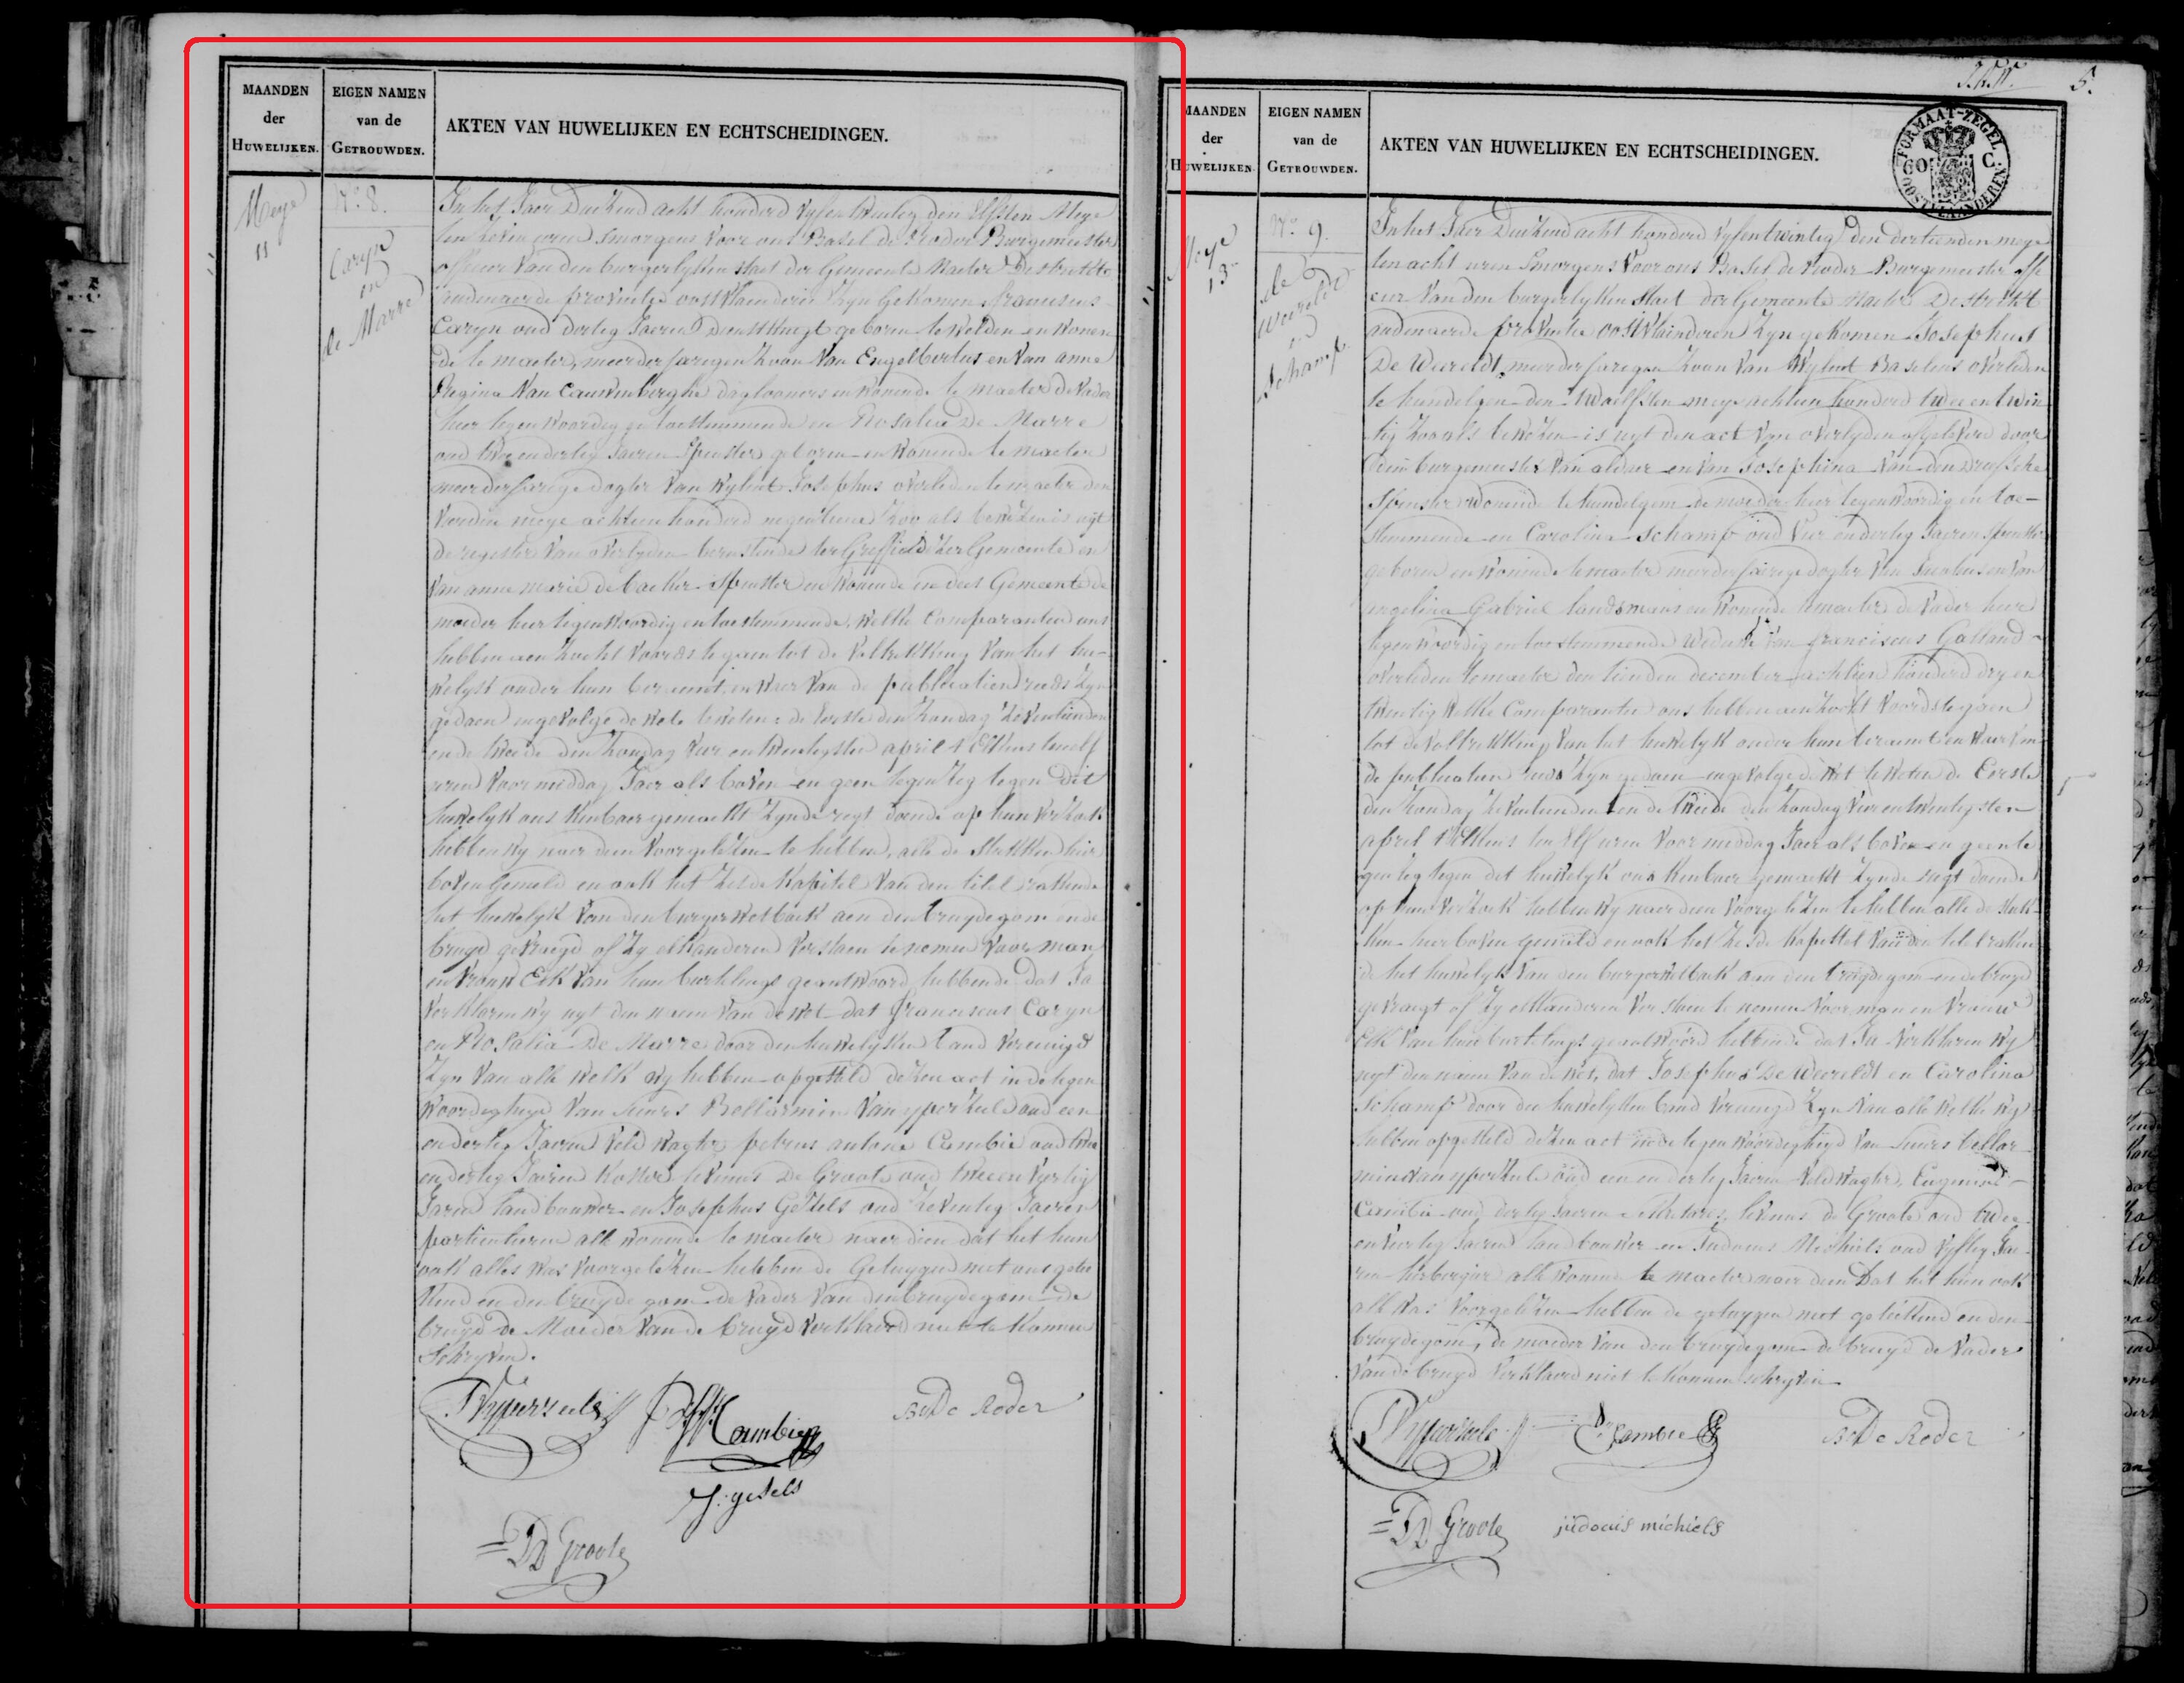 MAANDEN
der
HUWELIJKEN.
EIGEN NAMEN
van de
GETROUWDEN.
AKTEN VAN HUWELIJKEN EN ECHTSCHEIDINGEN.
Meye
11
N.o 8.
Caryn
en
de Marre
In het Jaer Duizend acht honderd vyfen twinteg den Elfsten Meye
ten zeven uren smorgens voor ons Basel de Roder Burgemeester
officier van den burgerlyken staet der Gemeente Maeter Destrikte
audenaerde provintie oost vlaenderen zyn gekomen franciscus
Caryn oud derteg Jaeren dienstknegt geboren te welden en wonen
de te maeter, meerderjarigen zoon van Engelbertus en van anne
Regina Van Cauwenberghe daglooners en wonende te maeter de vader
hier tegenwoordig en toestemmende en Rosalia De Marre
oud twee en derteg Jaeren Spinster geboren en wonende te maeter
meerderjarige dogter van wylent Josephus overleden te maeter den
meye achtien honderd negenthiene zoo als bewezen is uyt
de register van overlyden berustende ter Greffie dezer Gemeente en
van anne marie de backer Spinster en wonende in dees Gemeente de
moeder hier tegenwoordig en toestemmende, welke Comparanten ons
hebben aenzocht voords te gaen tot de voltrekking van het hu-
welyk onder hun beraemt, en waer van de publicatien reeds zyn
gedaen ingevolge de wet te weten: de eerste den zondag zeventienden
en de tweede den zondag vier en twintigsten april t'Elkens ten elf
uren voormiddag Jaer als boven en geen tegenzeg tegen dit
huwelyk ons kenbaer gemaekt zynde regt doende op hun verzoek
hebben wy naer dien voorgelezen te hebben, alle de stukken hier
boven gemeld en ook het zesde kapitel van den titel rakende
het huwelyk van den burger wetboek aen den bruydegom en de
bruyd gevraegd of zy elkanderen verstaen te nemen voor man
en vrouw Elk van hun burtelings geantwoord hebbende dat Ja
verklaren wy uyt den naem van de wet dat franciscus Caryn
en Rosalia De Marre door den huwelyken band vereenigd
zyn van alle welk wy hebben opgesteld dezen act in de tegen
woordigheyd van sieurs Bellarmin Van yperzeele oud een
en derteg Jaeren veld wagter, petrus antone Cambie oud twee
en derteg Jaeren Koster livinus De Groote oud twee en veertig
Jaeren landbouwer en Josephus Gessels oud zeventeg Jaeren
particulieren alle wonende te maeter naer dien dat het hun
ook alles was voorgelezen hebben de Getuygen met ons getee
kend en den bruydegom de vader van den bruydegom de
bruyd de Moeder van de bruyd verklaerd niet te konnen
schryven.
Cambier
B. De Roder
J: gesels
D Groote
MAANDEN
der
HUWELIJKEN.
EIGEN NAMEN
van de
GETROUWDEN.
AKTEN VAN HUWELIJKEN EN ECHTSCHEIDINGEN.
5.
FORMAAT-ZEGEL
60 C.
OOST-VLAANDEREN
Meye
13
N.o 9.
de
Weereldt
en
Schamp
In het Jaer Duizend acht honderd vyfentwinteg den dertienden meye
ten acht uren Smorgens voor ons Basel de Roder Burgemeester offi
cier van den burgerlyken staet der Gemeente Maeter Destrikt
audenaerde provintie oostvlainderen zyn gekomen Josephus
De Weereldt meerderjarigen zoon van wylent Baselius overleden
te hundelgem den twaelfsten meye achtien honderd twee en twin
tig zoo als bewezen is uyt den act van overlyden afgelevert door
den burgemeester van aldaer en van Josephina Van den
Spinster wonende te hundelgem de moeder hier tegenwoordig en toe-
stemmende en Carolina Schamp oud vier en derteg Jaeren spinster
geboren en wonende te maeter meerderjarige dogter van en van
angelina Gabriel landsmans en wonende te maeter de vader hier
tegenwoordig en toestemmende weduwe van franciscus Galland
overleden te maeter den tienden december achtien honderd dry en
twintig welke Comparanten ons hebben aenzocht voords te gaen
tot de voltrekking van het huwelyk onder hun beraemt en waer van
de publicatien reeds zyn gedaen ingevolge de wet te weten de Eerste
den zondag zeventienden en de tweede den zondag vier en twintigsten
april t'Elkens ten elf uren voormiddag Jaer als boven en geen te
genzeg tegen dit huwelyk ons kenbaer gemaekt zynde regt doende
op hun verzoek hebben wy naer dien voorgelezen te hebben alle de stuk-
ken hier boven gemeld en ook het zesde kapittel van den titel raken
de het huwelyk van den burgerwetboek aen den bruydegom en de bruyd
gevraegt of zy elkanderen verstaen te nemen voor man en vrouw
Elk van hun burtelings geantwoord hebbende dat Ja verklaren wy
uyt den naem van de wet, dat Josephus De Weereldt en Carolina
Schamp door den huwelyken band vereenigd zyn van alle welke wy
hebben opgesteld dezen act in de tegenwoordigheyd van sieurs bellar-
min van yperzeele oud een en derteg Jaeren veldwagter, Eugenius
Cambie oud derteg Jaeren secretaris, livinus de Groote oud twee
en veerteg Jaeren landbouwer en Judocus Michiels oud vyfteg Jae-
ren herbergier alle wonende te maeter naer dien dat het hun ook
alles was voorgelezen hebben de getuygen met geteekend en den
bruydegom, de moeder van den bruydegom de bruyd de vader
van de bruyd verklaerd niet te konnen schryven
Cambie
B. De Roder
D Groote
judocus michiels